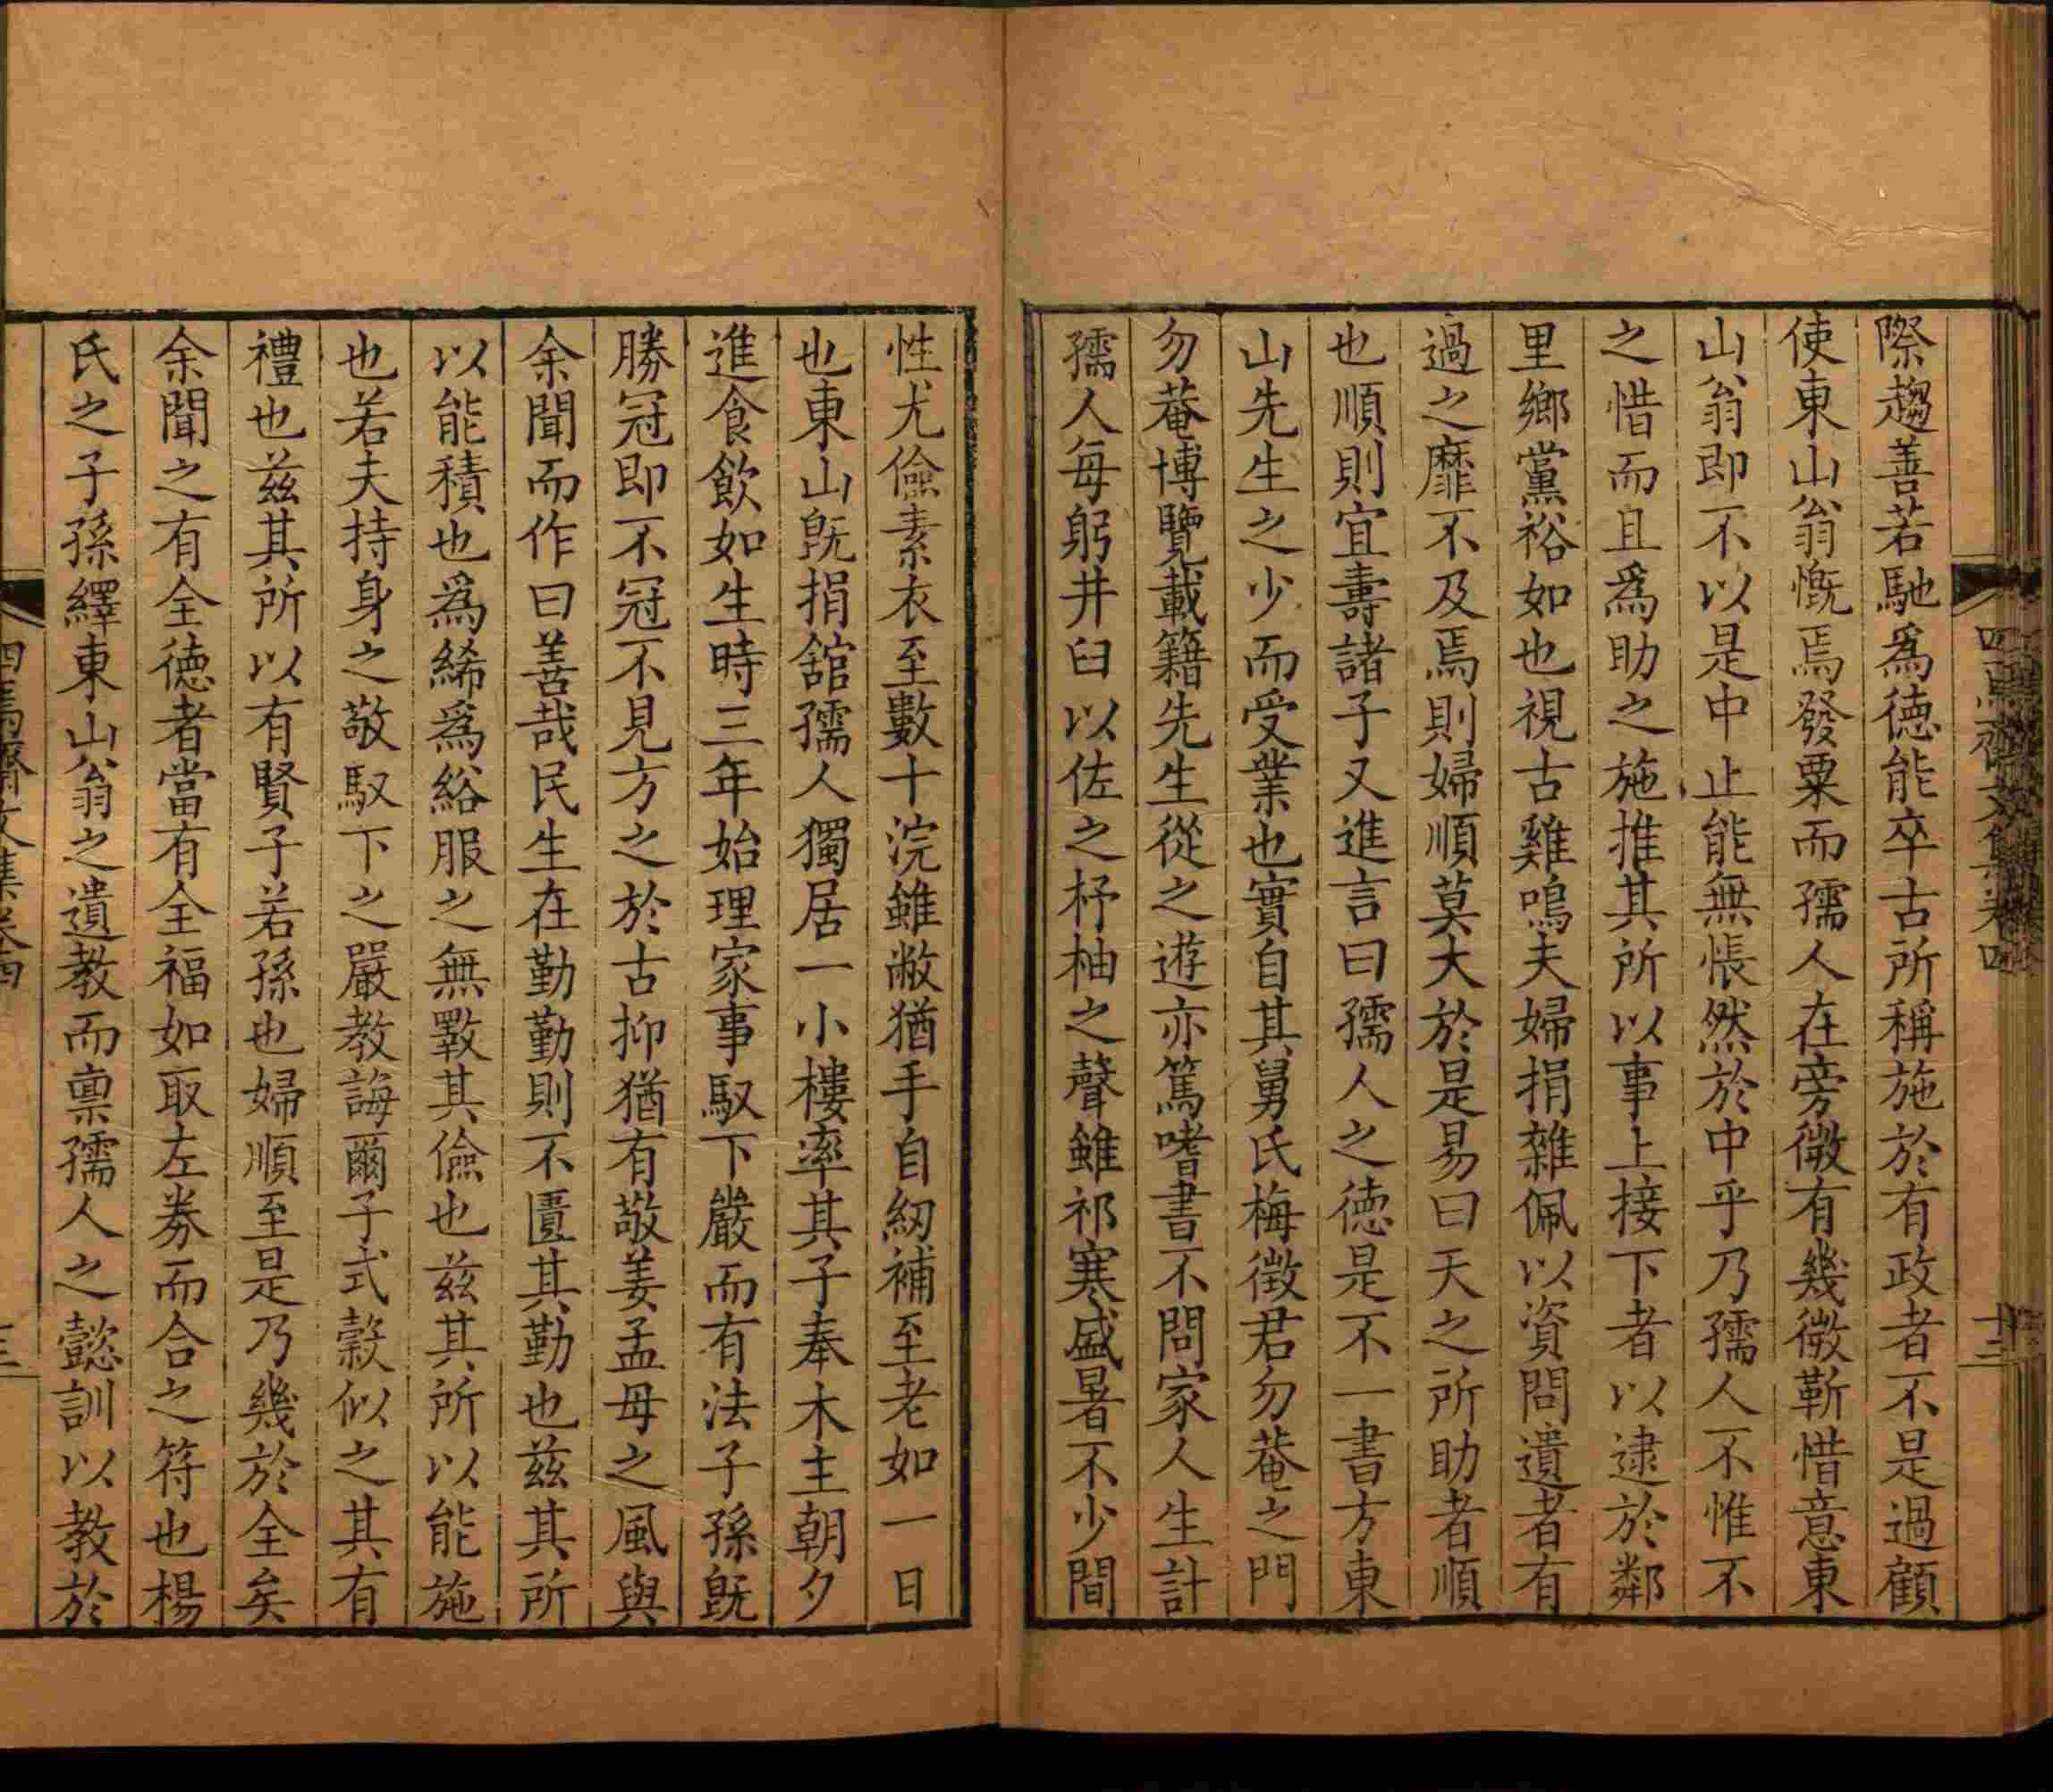 際趨善若馳爲德能卒古所稱施於有政者不是過顧
使東山翁慨焉發粟而孺人在旁微有幾微靳惜意東
山翁即不以是中止能無悵然於中乎乃孺人不惟不
之惜而且爲助之施推其所以事上接下者以逮於鄰
里鄉黨裕如也視古雞鳴夫婦捐雜佩以資問遺者有
過之靡不及焉則婦順莫大於是易曰天之所助者順
也順則宜壽諸子又進言曰孺人之德是不一書方東
山先生之少而受業也實自其舅氏梅徵君勿菴之門
勿菴博覽載籍先生從之遊亦篤嗜書不問家人生計
孺人每躬井臼以佐之杼柚之聲雖祁寒盛暑不少間
性尤儉素衣至數十浣雖敝猶手自紉補至老如一日
也東山旣捐舘孺人獨居一小樓率其子奉木主朝夕
進食飲如生時三年始理家事馭下嚴而有法子孫旣
勝冠即不冠不見方之於古抑猶有敬姜孟母之風與
余聞而作曰善哉民生在勤勤則不匱其勤也茲其所
以能積也爲絺爲綌服之無斁其儉也茲其所以能施
也若夫持身之敬馭下之嚴教誨爾子式穀似之其有
禮也茲其所以有賢子若孫也婦順至是乃幾於全矣
余聞之有全德者當有全福如取左券而合之符也楊
氏之子孫繹東山翁之遺教而稟孺人之懿訓以教於
四焉齋文集卷四
十三